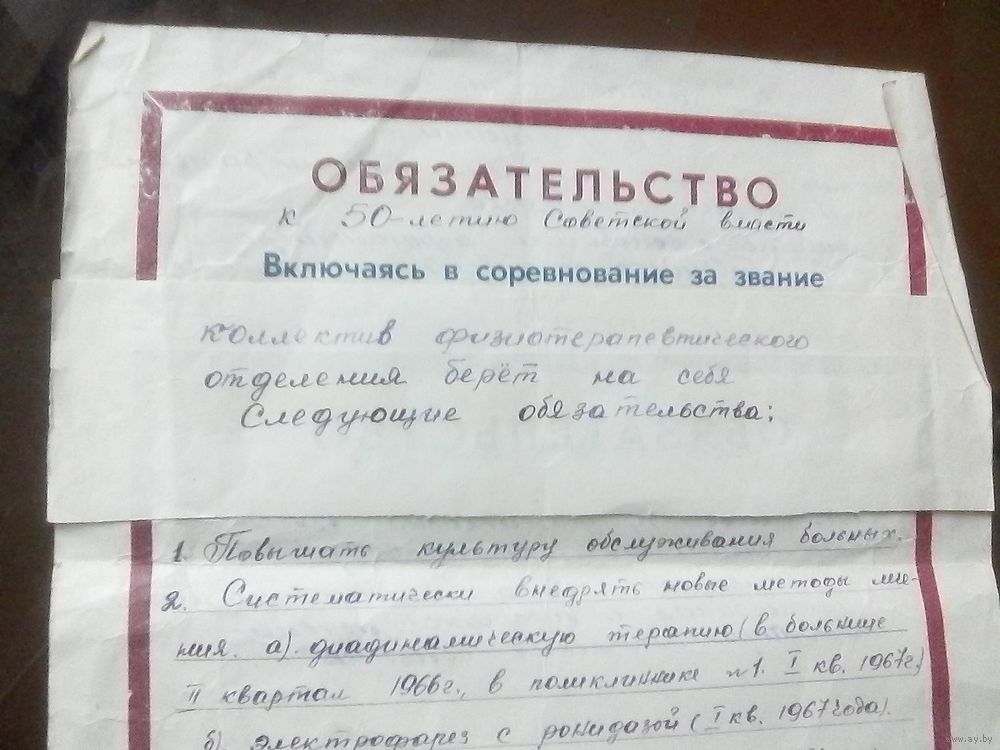 ОБЯЗАТЕЛЬСТВО
к 50-летию Советской власти
Включаясь в соревнование за звание
коллектив физиотерапевтического
отделения берёт на себя
следующие обязательства;
1. Повышать культуру обслуживания больных.
2. Систематически внедрять новые методы лече-
ния. а). диадинамическую терапию (в больнице
II квартал 1966г., в поликлинике №1. I кв. 1967г.)
б). электрофарез с ронидазой (I кв. 1967 года).
www.ay.by